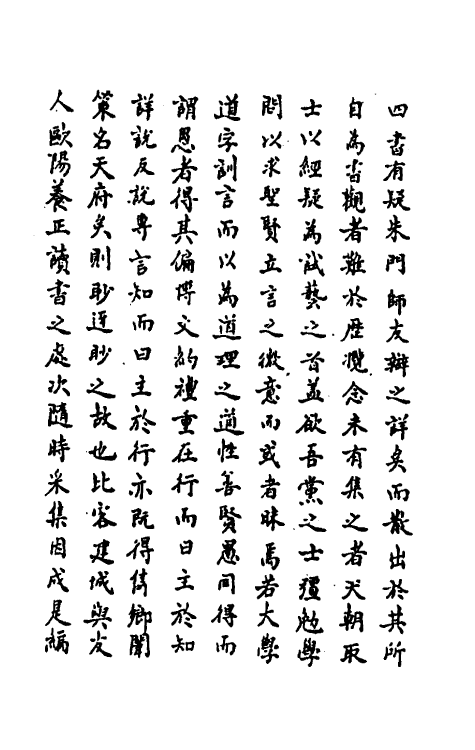 四書有疑朱門師友辯之詳矣而散出於其所
自為書觀者難於歷覽念未有集之者天朝取
士以經疑為試藝之首蓋欲吾黨之士彊勉學
問以求聖賢立言之微意而或者昧焉若大學
道字訓言而以為道理之道性善賢愚同得而
謂愚者得其偏博文約禮重在行而曰主於知
詳說反說專言知而曰主於行亦既得儁鄉闈
策名天府矣則眇迂眇之故也比客建城與友
人歐陽養正讀書之處次隨時采集因成是編